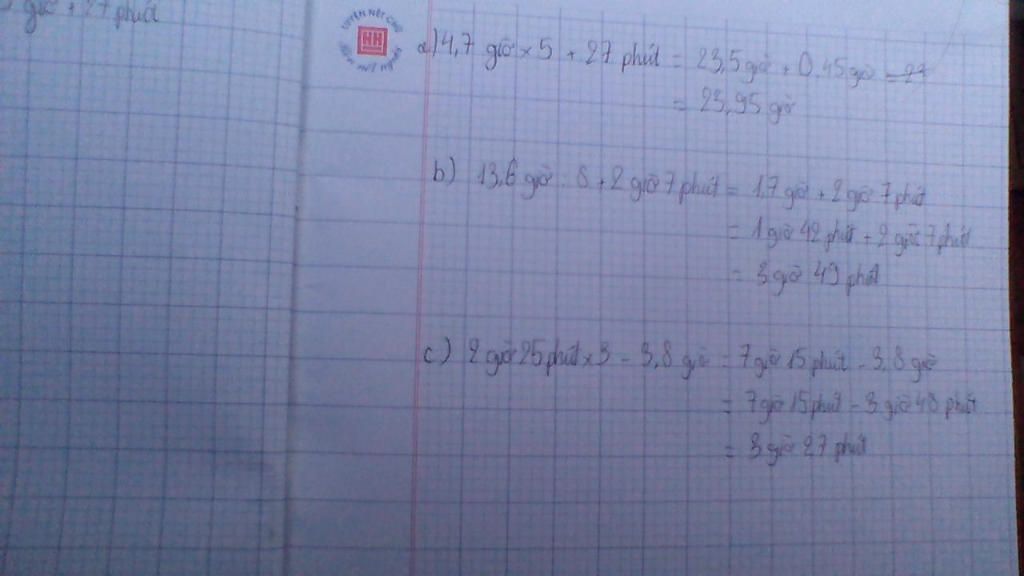 giờ + 27 phút
LUYỆN NÉT CHỮ
HH
RÈN NẾT NGƯỜI
a) 4,7 giờ x 5 + 27 phút = 23,5 giờ + 0,45 giờ =
= 23,95 giờ
b) 13,6 giờ : 8 + 2 giờ 7 phút = 1,7 giờ + 2 giờ 7 phút
= 1 giờ 42 phút + 2 giờ 7 phút
= 3 giờ 49 phút
c) 2 giờ 25 phút x 3 - 3,8 giờ = 7 giờ 15 phút - 3,8 giờ
= 7 giờ 15 phút - 3 giờ 48 phút
= 3 giờ 27 phút